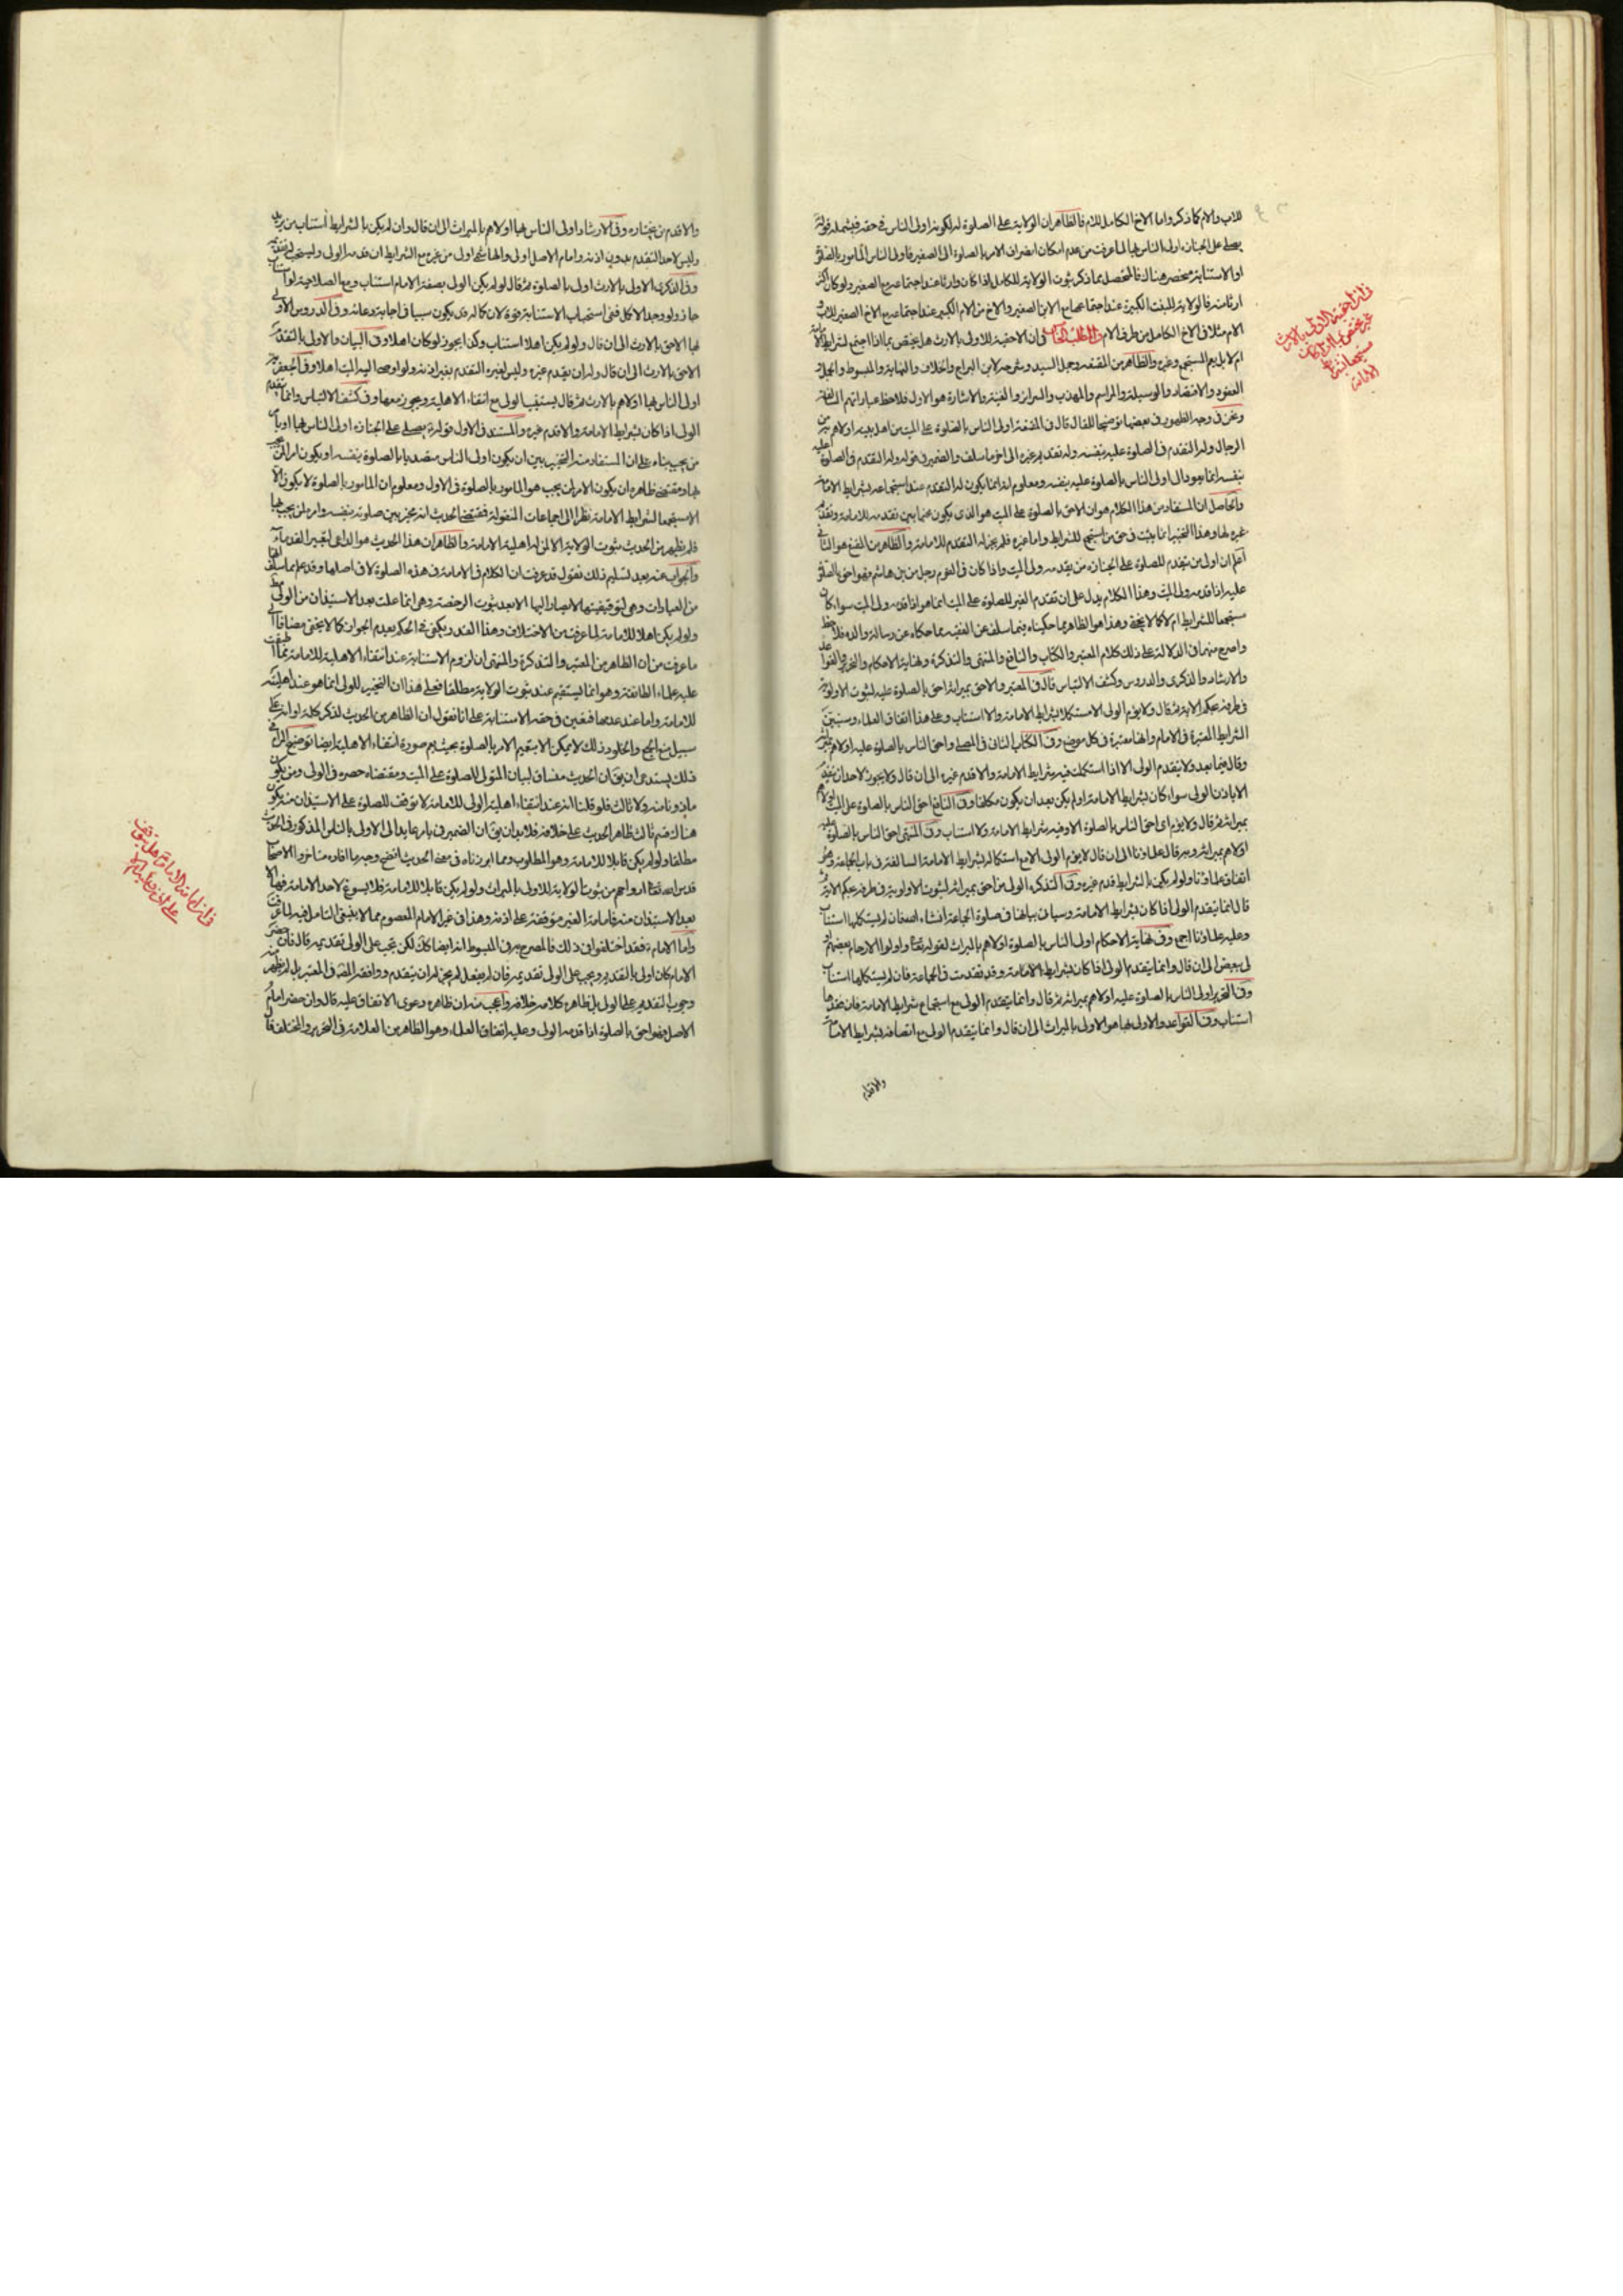 للاب والام كما ذكر واما الاخ الكامل للام فالظاهر ان الولاية على الصلوة له لكونه اولى الناس في حقه فيشمله قوله
يصلى على الجنازه اولى الناس بها لما عرفت من عدم امكان انصراف الامر بالصلوة الى الصغير فاولى الناس المأمور بالصلوة
او الاستنابة منحصر هناك فالمتحصل مما ذكر ثبوت الولاية للكامل اذا كان وارثا عند اجتماعه مع الصغير ولو كان اكثر
ارثا منه فالولاية للبنت الكبيرة عند اجتماعها مع الابن الصغير والاخ من الام الكبير عند اجتماعه مع الاخ الصغير للاب و
الام مثلا في الاخ الكامل من طرف الام المطلب في ان الاحقية للاولى بالارث هل يختص بما اذا اجتمع لشرايط الامامة
ام لا بل يعم المستجمع وغيره والظاهر من المقنعه وجمل السيد وشرحه لابن البراج والخلاف والنهاية والمبسوط والجمل و
العقود والاقتصاد والوسيلة والمراسم والمهذب والسرائر والغنية والاشارة هو الاول فلاحظ عباراتهم
ونحن في وجه الظهور في بعضها توضيحا للمقال قال في المقنعة اولى الناس بالصلوة على الميت من اهل بيته اولاهم به من
الرجال وله التقدم في الصلوة عليه بنفسه وله تقديم غيره الى اخر ما سلف والضمير في قوله وله التقدم في الصلوة عليه
بنفسه انما يعود الى اولى الناس بالصلوة عليه بنفسه ومعلوم انه انما يكون له التقدم عند استجماعه لشرايط الامامة
والحاصل ان المستفاد من هذا الكلام هو ان الاحق بالصلوة على الميت هو الذى يكون مخيرا بين تقدمه للامامة وتقديم
غيره لها وهذا التخيير انما يثبت في حق من استجمع للشرايط واما غيره فلم يجز له التقدم للامامة والظاهر من الفقيه هو الثاني
اعلم ان اولى من يتقدم للصلوة على الجنازه من يقدمه ولى الميت واذا كان في القوم رجل من بنى هاشم فهو احق بالصلوة
عليه اذا قدمه ولى الميت وهذا الكلام يدل على ان تقدم الغير للصلوة على الميت انما هو اذا قدمه ولى الميت سواء كان
مستجمعا للشرايط ام لا كما لا يخفى وهذا هو الظاهر مما حكيناه فيما سلف عن الفقيه مما حكاه عن رسالة والده فلاحظ
واصرح منهما في الدلالة على ذلك كلام المعتبر والكتاب والنافع والمنتهى والتذكرة ونهاية الاحكام والتحرير والقواعد
والارشاد والذكرى والدروس وكشف الالتباس قال في المعتبر والاحق بميراثه احق بالصلوة عليه لثبوت الاولوية
في طرفه بحكم الاية ثم قال ولا يؤم الولى الا مستكملا لشرايط الامامة والا استناب وعلى هذا اتفاق العلماء وسنبين
الشرايط المعتبرة في الامام وانها معتبرة في كل موضع وفي الكتاب الثانى في المصلى واحق الناس بالصلوة عليه اولاهم بميراثه
وقال فيما بعد ولا يتقدم الولى الا اذا استكملت فيه شرايط الامامة والا قدم غيره الى ان قال ولا يجوز لاحد ان يتقدم
الا باذن الولى سواء كان لشرايط الامامة او لم يكن بعد ان يكون مكلفا وفي النافع احق الناس بالصلوة على الميت اولاهم
بميراثه ثم قال ولا يؤم اى احق الناس بالصلوة الا وفيه شرايط الامامة والا استناب وفي المنتهى احق الناس بالصلوة عليه
اولاهم بميراثه وبه قال علماؤنا الى ان قال لا يؤم الولى الا مع استكماله لشرايط الامامة السالفة في باب الجماعة وهو
اتفاق علماؤنا ولو لم يكن بالشرايط قدم غيره وفي التذكره الولى من احق بميراثه لثبوت الاولوية في طرفه بحكم الاية ثم
قال انما يتقدم الولى اذا كان بشرايط الامامة وسياتى بيانها في صلوة الجماعة انشاء الله فان لم يستكملها استناب
وعليه علماؤنا اجمع وفي نهاية الاحكام اولى الناس بالصلوة اولاهم بالميراث لقوله تعالى واولوا الارحام بعضهم او
لى ببعض الى ان قال وانما يتقدم الولى اذا كان بشرايط الامامة وقد تقدمت في الجماعة فان لم يستكملها استناب
وفي التحرير اولى الناس بالصلوة عليه اولاهم بميراثه ثم قال وانما يتقدم الولى مع استجماع شرايط الامامة فان فقدها
استناب وفي القواعد والاولى بها هو الاولى بالميراث الى ان قال وانما يتقدم الولى مع اتصافه بشرايط الامامة
والاقدم
في ان احقية الاولى بالارث
غير مختص بما اذا كان
مستجمعا لشرايط
الامامة
والا قدم من يختاره وفي الارشاد واولى الناس بها اولاهم بالميراث الى ان قال وان لم يكن بالشرايط استناب من يريد
وليس لاحد التقدم بدون اذنه وامام الاصل اولى والهاشمى اولى من غيره مع الشرايط ان قدمه الولى ويستحب له تقديمه
وفي الذكرى الاولى بالارث اولى بالصلوة ثم قال لو لم يكن الولى بصفة الامام استناب ومع الصلاحية لو استناب
جاز ولو وجد الاكمل ففى استحباب الاستنابة قوة لان كماله قد يكون سببا في اجابة دعائه وفي الدروس الاولى
بها الاحق بالارث الى ان قال ولو لم يكن اهلا استناب وكذا يجوز لو كان اهلا وفي البيان والاولى بالتقدم
الاحق بالارث الى ان قال وله ان يقدم غيره وليس لغيره التقدم بغير اذنه ولو اوصى اليه الميت اهلا وفي الجعفرية
اولى الناس بها اولاهم بالارث ثم قال يستنيب الولى مع انتفاء الاهلية ويجوز معها وفي كشف الالتباس وانما يتقدم
الولى اذا كان بشرايط الامامة والا قدم غيره والمستند في الاول قوله يصلى على الجنازه اولى الناس بها او يأمر
من يحب بناء على ان المستفاد منه التخيير بين ان يكون اولى الناس متصديا بالصلوة بنفسه او يكون امرا لمن يحب
بها ومقتضى ظاهره ان يكون الامر لمن يحب هو المأمور بالصلوة في الاول ومعلوم ان المأمور بالصلوة لا يكون الا
المستجمع لشرايط الامامة نظرا الى اجماعات المنقولة فمقتضى الحديث انه مخير بين صلوته بنفسه وامره لمن يحب بها
فلم يظهر من الحديث ثبوت الولاية الا لمن له اهلية الامامة والظاهر ان هذا الحديث هو الداعى لتعبير القدماء
والجواب عنه بعد تسليم ذلك نقول قد عرفت ان الكلام في الامامة في هذه الصلوة لا في اصلها وقد علم مما سلف انها
من العبادات وهى لتوقيفيتها لا يصار اليها الا بعد ثبوت الرخصة وهى انما علمت بعد الاستيذان من الولى
ولو لم يكن اهلا للامامة لما عرفت من الاختلاف وهذا القدر يكفى في الحكم بعدم الجواز كما لا يخفى مضافا الى
ما عرفت من ان الظاهر من المعتبر والتذكرة والمنتهى ان لزوم الاستنابة عند انتفاء الاهلية للامامة مما اطبقت
عليه علماء الطائفة وهو انما يستقيم عند ثبوت الولاية مطلقا فعلى هذا ان التخيير للولى انما هو عند اهليته
للامامة واما عند عدمها فيتعين في حقه الاستنابة على انا نقول ان الظاهر من الحديث لذكر كلمة او انه على
سبيل منع الجمع والخلو وذلك لا يمكن الا بتعميم الامر بالصلوة بحيث يعم صورة انتفاء الاهلية ايضا توضيح المرام في
ذلك يستدعى ان يق ان الحديث مساق لبيان المتولى للصلوة على الميت ومقتضاه حصره في الولى ومن يكون
ماذونا منه ولا ثالث فلو قلنا انه عند انتفاء اهلية الولى للامامة لا توقف للصلوة على الاستيذان منه يكون
هناك قسم ثالث ظاهر الحديث على خلافه فلا بد ان يق ان الضمير في يامر عايد الى الاولى بالناس المذكور في الحديث
مطلقا ولو لم يكن قابلا للامامة وهو المطلوب ومما ابرزناه في معنى الحديث اتضح وجه ما افاده متاخروا الاصحاب
قدس الله تعالى ارواحهم من ثبوت الولاية للاولى بالميراث ولو لم يكن قابلا للامامة فلا يسوغ لاحد الامامة فيها الا
بعد الاستيذان منه فامامة الغير موقوفة على اذنه وهذا في غير الامام المعصوم مما لا ينبغى التامل فيه لما عرفت
واما الامام ع فقد اختلفوا في ذلك فالمصرح به في المبسوط انه ايضا كك لكن يجب على الولى تقديمه قال فان حضر
الامام كان اولى بالتقديم ويجب على الولى تقديمه فان لم يفعل لم يجز له ان يتقدم ووافقه المص في المعتبر بل لم يظهر منه
وجوب التقديم على الولى بل ظاهره كلامه خلافه واعجب منه ان ظاهره دعوى الاتفاق عليه قال وان حضر امام
الاصل فهو احق بالصلوة اذا قدمه الولى وعليه اتفاق العلماء وهو الظاهر من العلامة في التحرير والمختلف قال
في ان امامة الامام هل يتوقف
على اذن ولى الميت ام لا